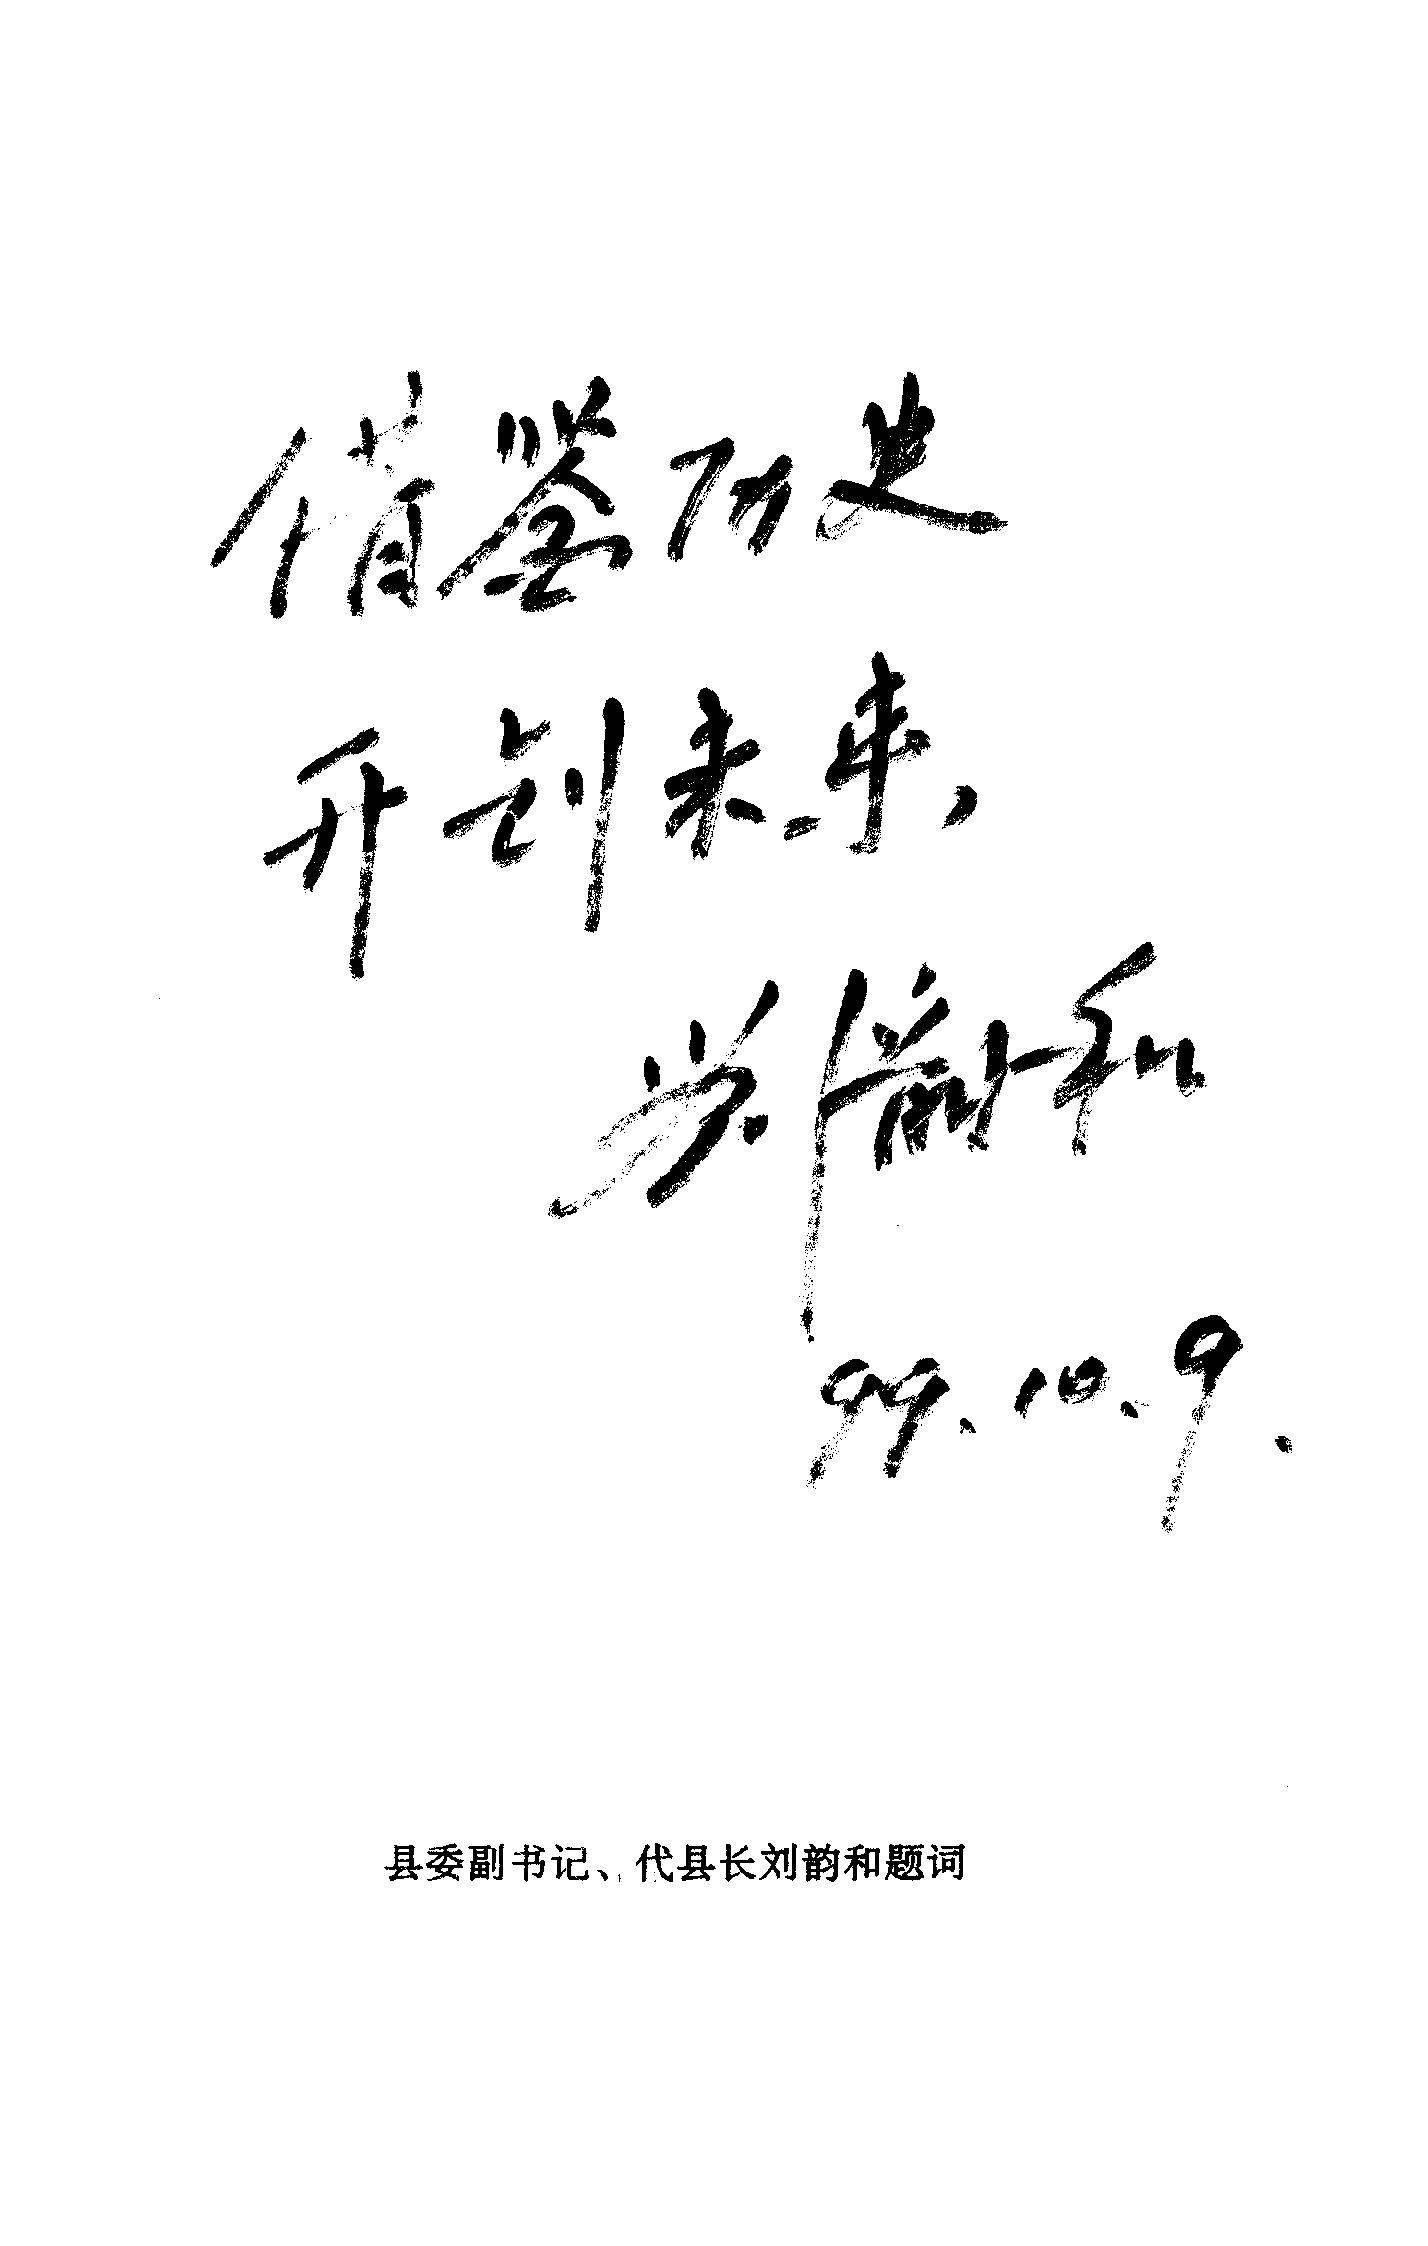 借鉴历史
开创未来、
刘韵和
99.10.9.
县委副书记、代县长刘韵和题词